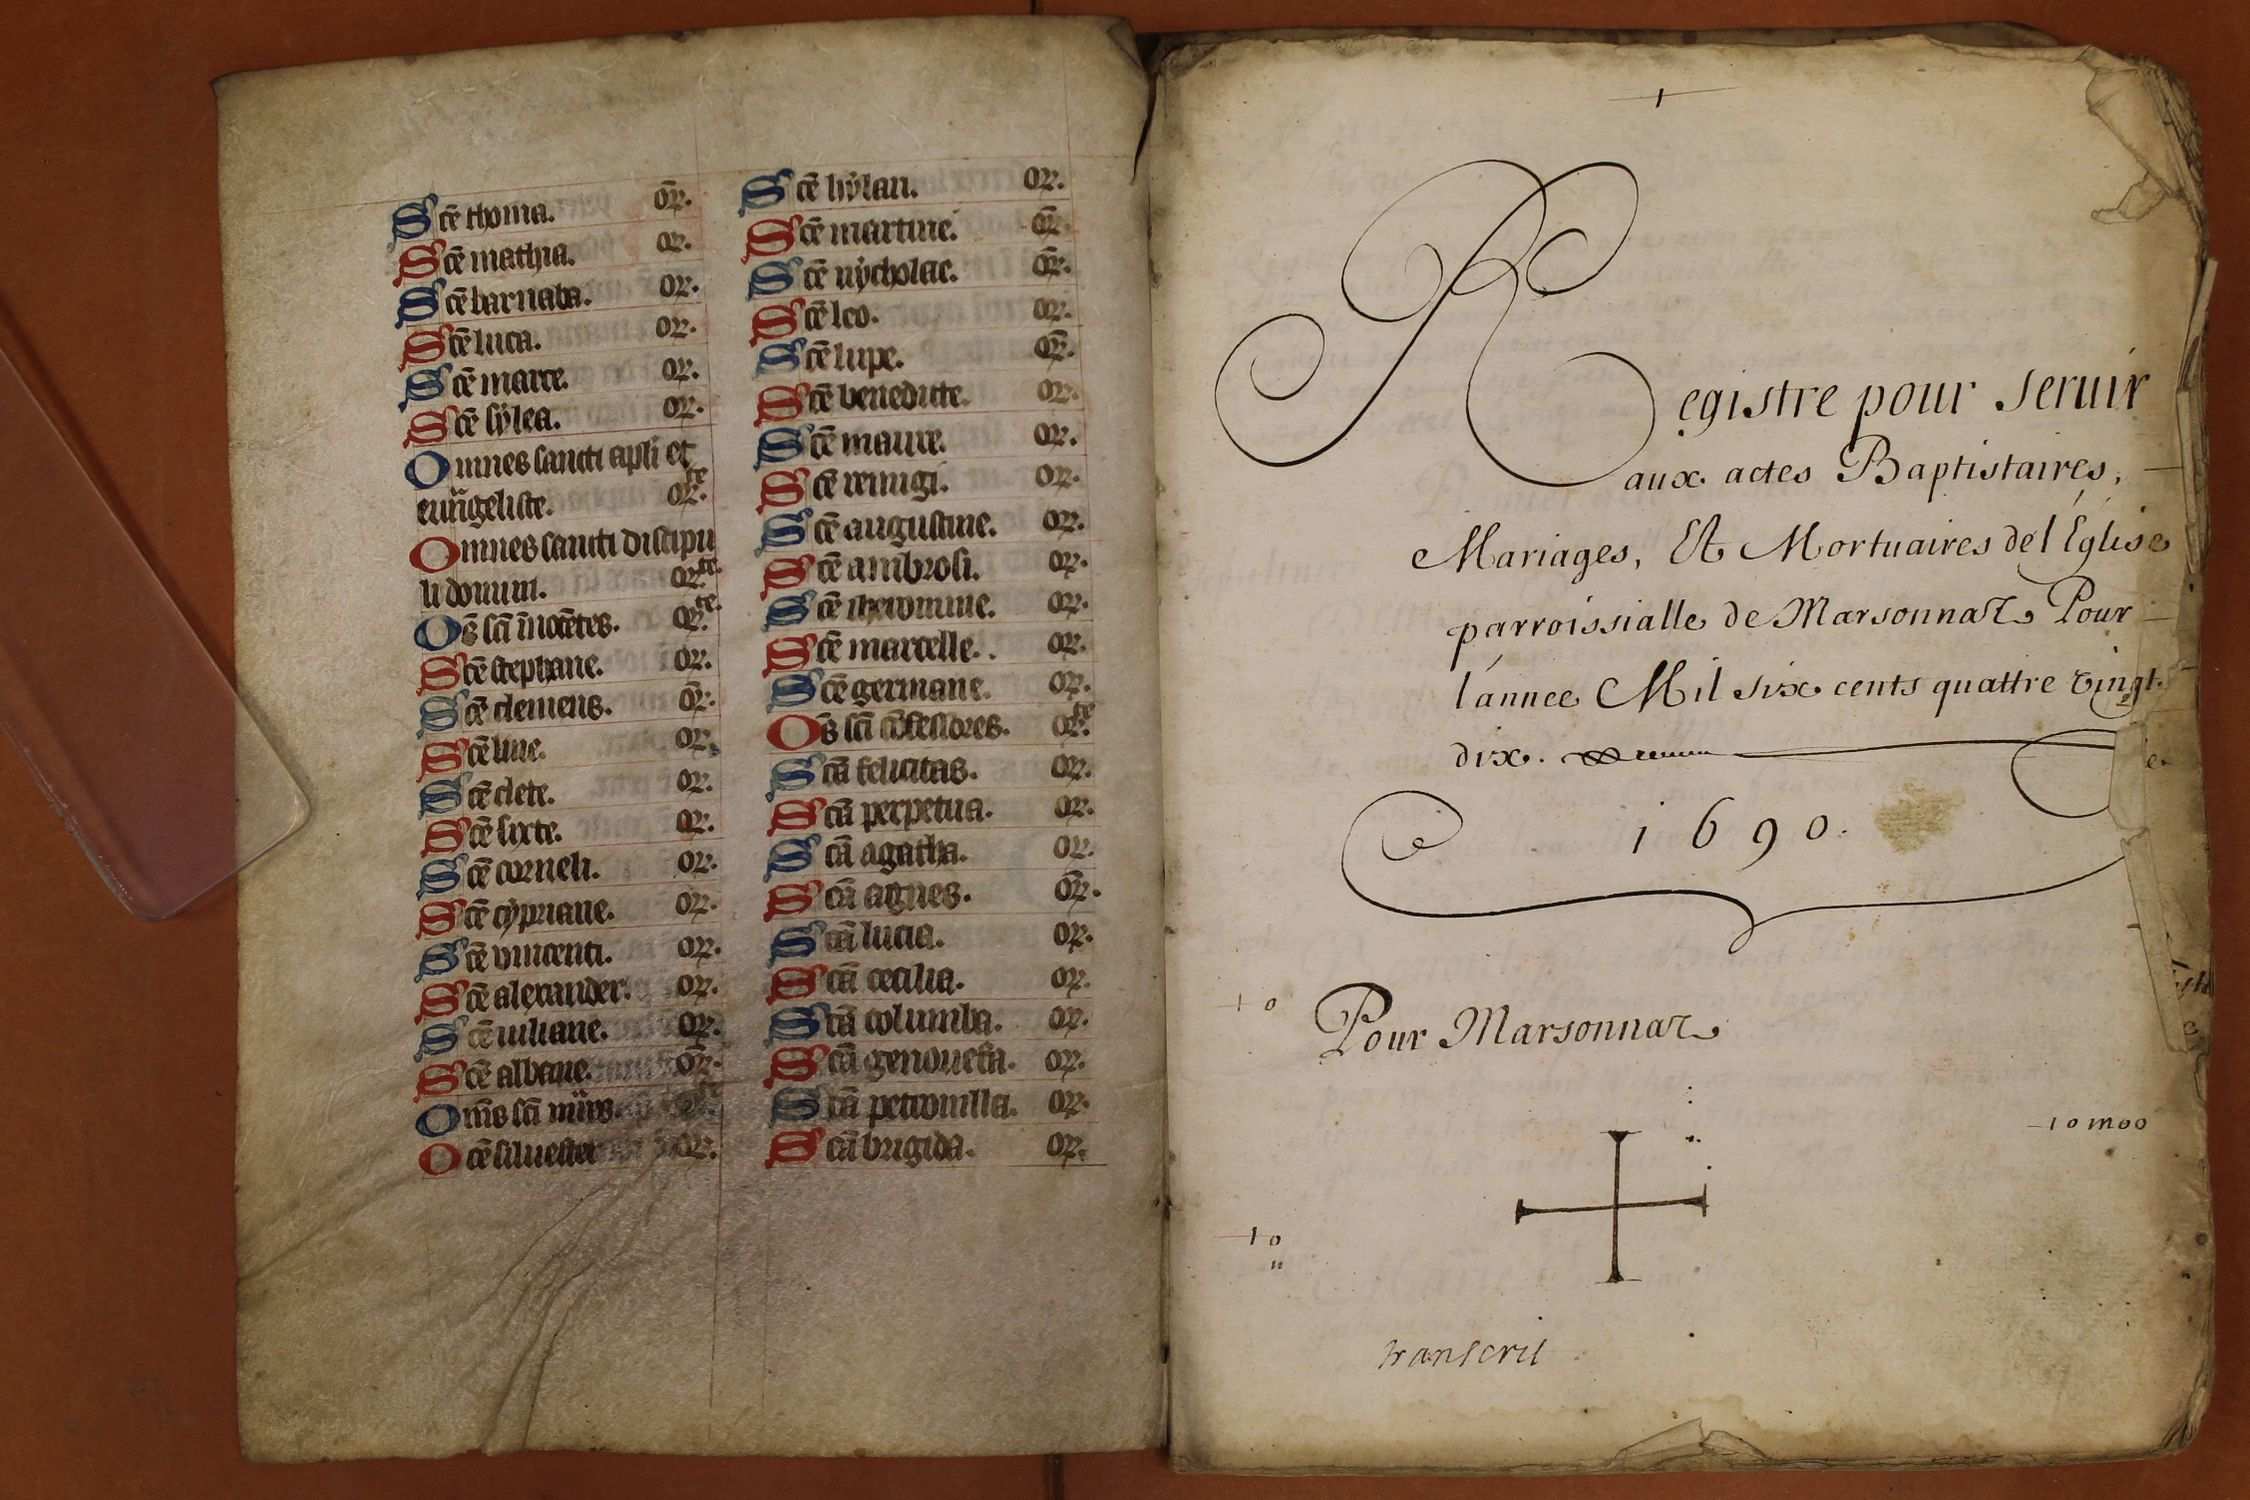 Scē thoma. or̄.
Scē mathia. or.
Scē barnaba. or.
Scē luca. or.
Scē marce. or.
Scē sylea. or.
Omnes sancti apli et
euūgeliste. or.te
Omnes sancti discipu
li domini. or.te
Os̄ sci īnocētes. or.te
Scē stephane. or.
Scē clemens. or̄.
Scē line. or.
Scē clete. or.
Scē sixte. or.
Scē corneli. or.
Scē cypriane. or.
Scē vincenti. or.
Scē alexander. or.
Scē iuliane. or.
Scē albane. or̄.
Om̄s sci mr̄es.
Ocē siluester or.
Scē hylari. or.
Scē martine. or̄.
Scē nycholae. or̄.
Scē leo. or.
Scē lupe. or̄.
Scē benedicte. or.
Scē maure. or.
Scē remigi. or.
Scē augustine. or.
Scē ambrosi. or.
Scē iheronime. or.
Scē marcelle. . or.
Scē germane. or.
Os̄ sci cōfessores. or.te
Scā felicitas. or.
Scā perpetua. or.
Scā agatha. or.
Scā agnes. or̄.
Scā lucia. or.
Scā cecilia. or.
Scā columba. or.
Scā genouefa. or.
Scā petronilla. or.
Scā brigida. or.
1
Registre pour seruir
aux actes Baptistaires,
Mariages, Et Mortuaires de l'Église
parroissialle de Marsonnaz Pour
l'annee Mil six cents quattre vingt
dix.
1690.
10
Pour Marsonnaz
10
transcrit